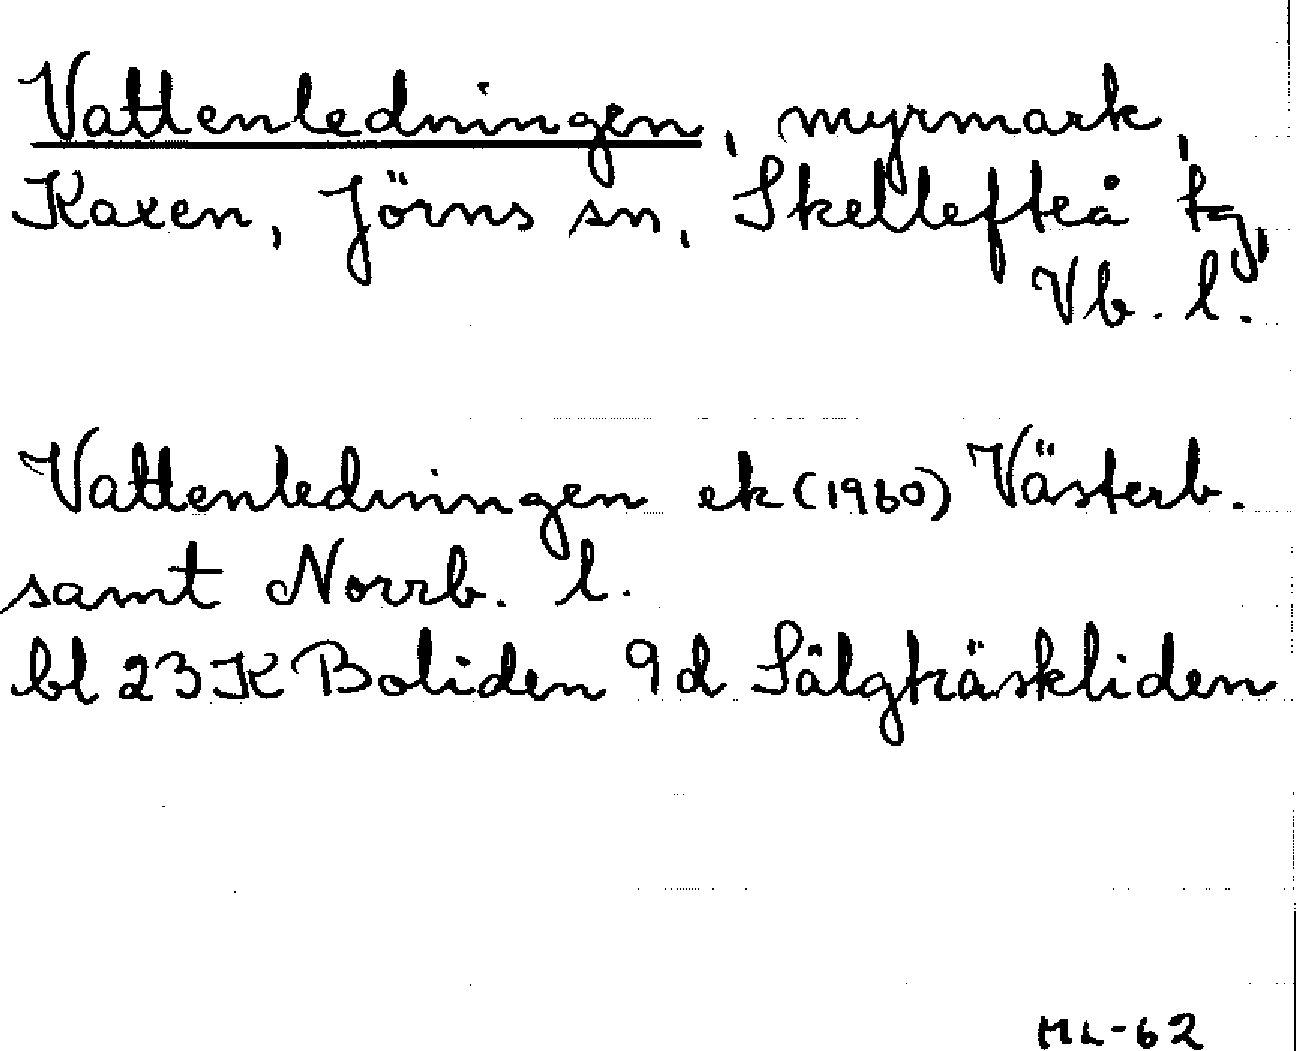 Vattenledningen, myrmark,
Kaxen, Jörns sn, Skellefteå tg,
Vb. l.
Vattenledningen ek (1960) Västerb.
samt Norrb. l.
bl 23K Boliden 9d Sälgträskliden
ML-62